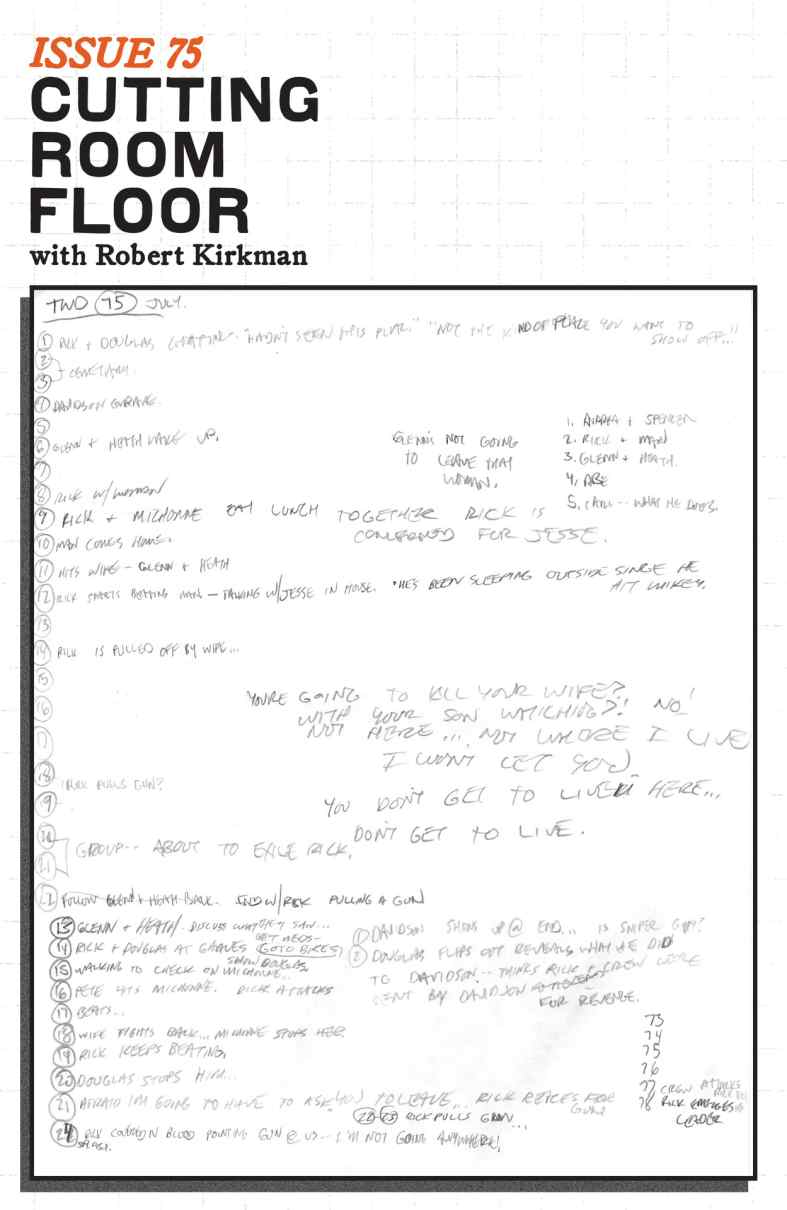 ISSUE 75
CUTTING
ROOM
FLOOR
with Robert Kirkman
TWD 75 JULY.
1 RICK + DOUGLAS CHATTING. "HADN'T SEEN THIS PLACE." "NOT THE KIND OF PLACE YOU WANT TO
SHOW OFF..."
2
3 + CEMETARY.
4 DAVIDSON GRAVE.
5
6 GLENN + HEATH WAKE UP.
7
8 RICK W/WOMAN
GLENN'S NOT GOING
TO LEAVE THAT
WOMAN.
1. ANDREA + SPENCER
2. RICK + MAN
3. GLENN + HEATH.
4. ABE
5. CARL -- WHAT HE DOES.
9 RICK + MICHONNE EAT LUNCH TOGETHER RICK IS
CONCERNED FOR JESSE.
10 MAN COMES HOME.
11 HITS WIFE - GLENN + HEATH
12 RICK STARTS BEATING MAN - TALKING W/JESSE IN HOUSE. *HE'S BEEN SLEEPING OUTSIDE SINCE HE
HIT MIKEY.
13
14 RICK IS PULLED OFF BY WIFE...
15
16
17
YOU'RE GOING TO KILL YOUR WIFE?
WITH YOUR SON WATCHING?! NO!
NOT HERE... NOT WHERE I LIVE
I WON'T LET YOU.
18 RICK PULLS GUN?
19
YOU DON'T GET TO LIVE HERE...
DON'T GET TO LIVE.
20
21 GROUP -- ABOUT TO EXILE RICK.
22 FOLLOW GLENN + HEATH BACK. END W/RICK PULLING A GUN
13 GLENN + HEATH. DISCUSS WHAT THEY SAW...
GET MEDS--
14 RICK + DOUGLAS AT GRAVES (GO TO BIKES)
SHOW DOUGLAS
15 WALKING TO CHECK ON MICHONNE...
16 PETE HITS MICHONNE. RICK ATTACKS
17 BEATS...
18 WIFE FIGHTS BACK... MICHONNE STOPS HER.
19 RICK KEEPS BEATING,
20 DOUGLAS STOPS HIM...
21 AFRAID I'M GOING TO HAVE TO ASK YOU TO LEAVE... RICK REACHES FOR
GUN!
22-23 RICK PULLS GUN...
24 RICK COVERED IN BLOOD POINTING GUN @ US -- I'M NOT GOING ANYWHERE!
SPLASH.
1 DAVIDSON SHOWS UP @ END... IS SNIPER GUY?
2 DOUGLAS FLIPS OUT REVEALS WHAT HE DID
TO DAVIDSON -- THINKS RICK + CREW WERE
SENT BY DAVIDSON
FOR REVENGE.
73
74
75
76
77 CREW ATTACKS
78 RICK EMERGES AS
LEADER